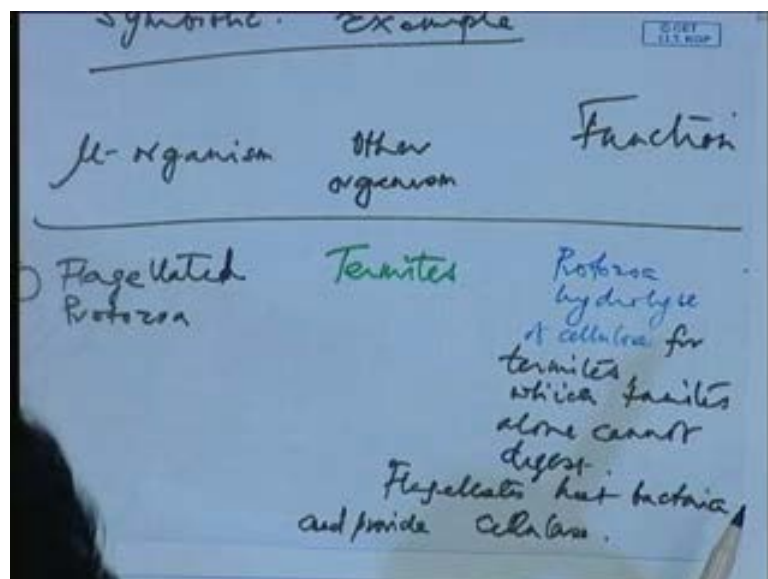 Symbiotic. Example
© CET
I.I.T. KGP
μ-organism Other organism Function
Flagellated Protozoa
Termites
Protozoa
hydrolyse
of cellulose for
termites
which termites
alone cannot
digest.
Flagellates host bacteria
and provide cellulase.